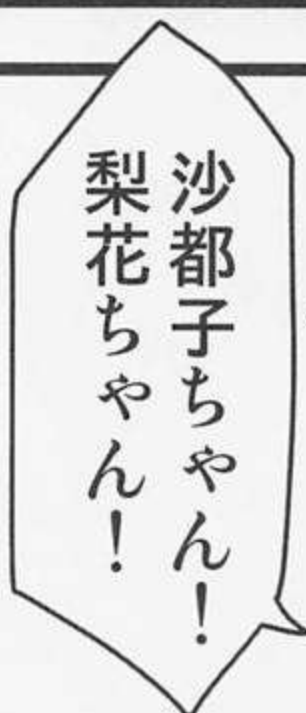 沙都子ちゃん！
梨花ちゃん！